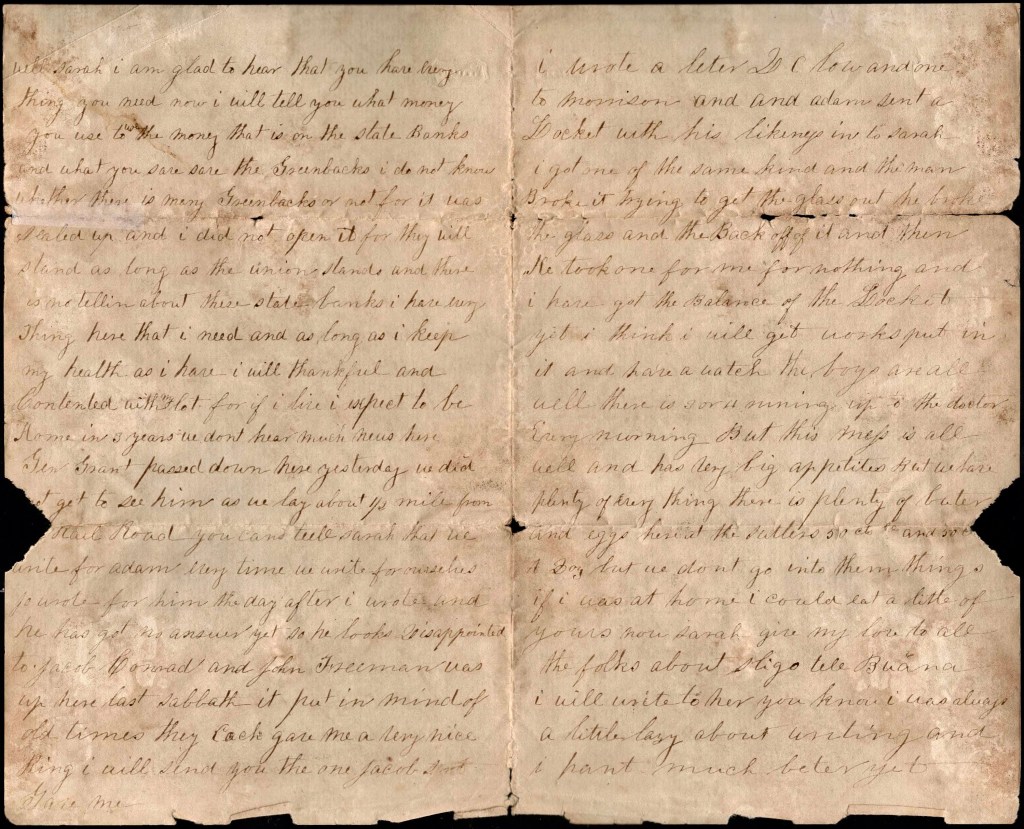 well sarah i am glad to hear that you have very
thing you need now i will tell you what money
you use to the money that is on the state Banks
and what you save save the Greenbacks i do not know
whether there is meny Greenbacks or not for it was
sealed up and i did not open it for they will
stand as long as the union stands and there
is no tellin about these state banks i have very
Thing here that i need and as long as i keep
my health as i have i will thankful and
Contented with lot for if i live i expect to be
Home in 3 years we dont hear much news here
Gen Grant passed down here yesterday we did
not get to see him as we lay about 1/3 mile from
Rail Road you cand tell sarah that we
write for adam very time we write for ourselves
jo wrote for him the day after i wrote and
he has got no answer yet so he looks Disappointed
to Jacob Conrad and John Freeman was
up here last sabbath it put in mind of
old times they Each gave me a very nice
Ring i will send you the one Jacob
Gave me
i wrote a leter D C low and one
to morrison and and adam sent a
Locket with his likeness in to sarah
i got one of the same kind and the man
Broke it trying to get the glass out he broke
The glass and the Back off of it and then
He took one for me for nothing and
i have got the Balance of the Locket
yet i think i will git works put in
it and have a watch the boys are all
well there is runing up to the doctor
Every morning But this mess is all
well and has very big appetites but we have
plenty of every thing there is plenty of buter
and eggs here at the sutlers 50 cts and 50 c
A Doz but we dont go into them things
if i was at home i could eat a little of
yours now sarah give my love to all
the folks about sligo tell
i will write to her you know i was always
a little lazy about writing and
i pant much beter yet